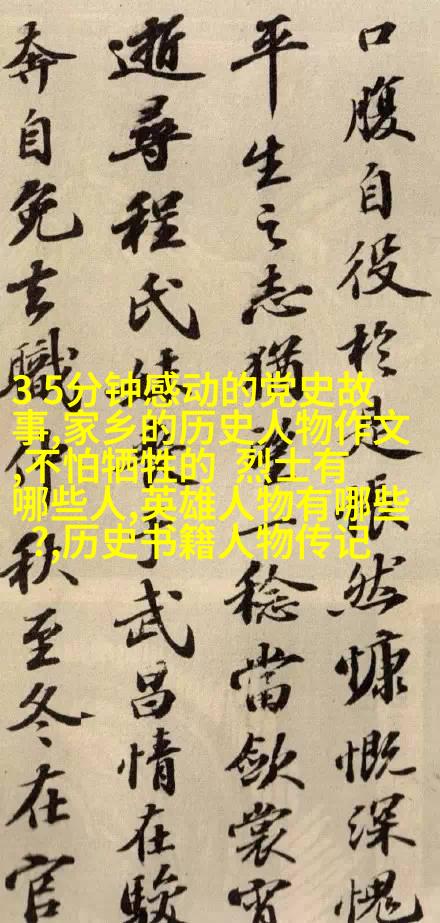 口腹自役於是悵然慷慨深愧
平生之志猶一稔當斂裳宵
逝尋程氏于武昌情在駿
奔自免去職仲秋至冬在官
3 5分钟感动的党史故
事,家乡的历史人物作文
,不怕牺牲的 烈士有
哪些人,英雄人物有哪些
?,历史书籍人物传记